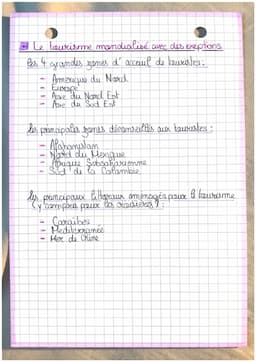 Le tourisme mondialisé avec des exeptions
Les 4 grandes zones d'acceuil de touristes :
- Amérique du Nord
- Europe
- Asie du Nord Est
- Asie du Sud Est
Les principales zones déconseillés aux touristes :
- Afghanistan
- Nord du Mexique
- Afrique Subsaharienne
- Sud de la Colombie
Les principaux littoraux aménagés pour le tourisme
(y compris pour les croisières) :
- Caraïbes
- Méditerranée
- Mer de Chine